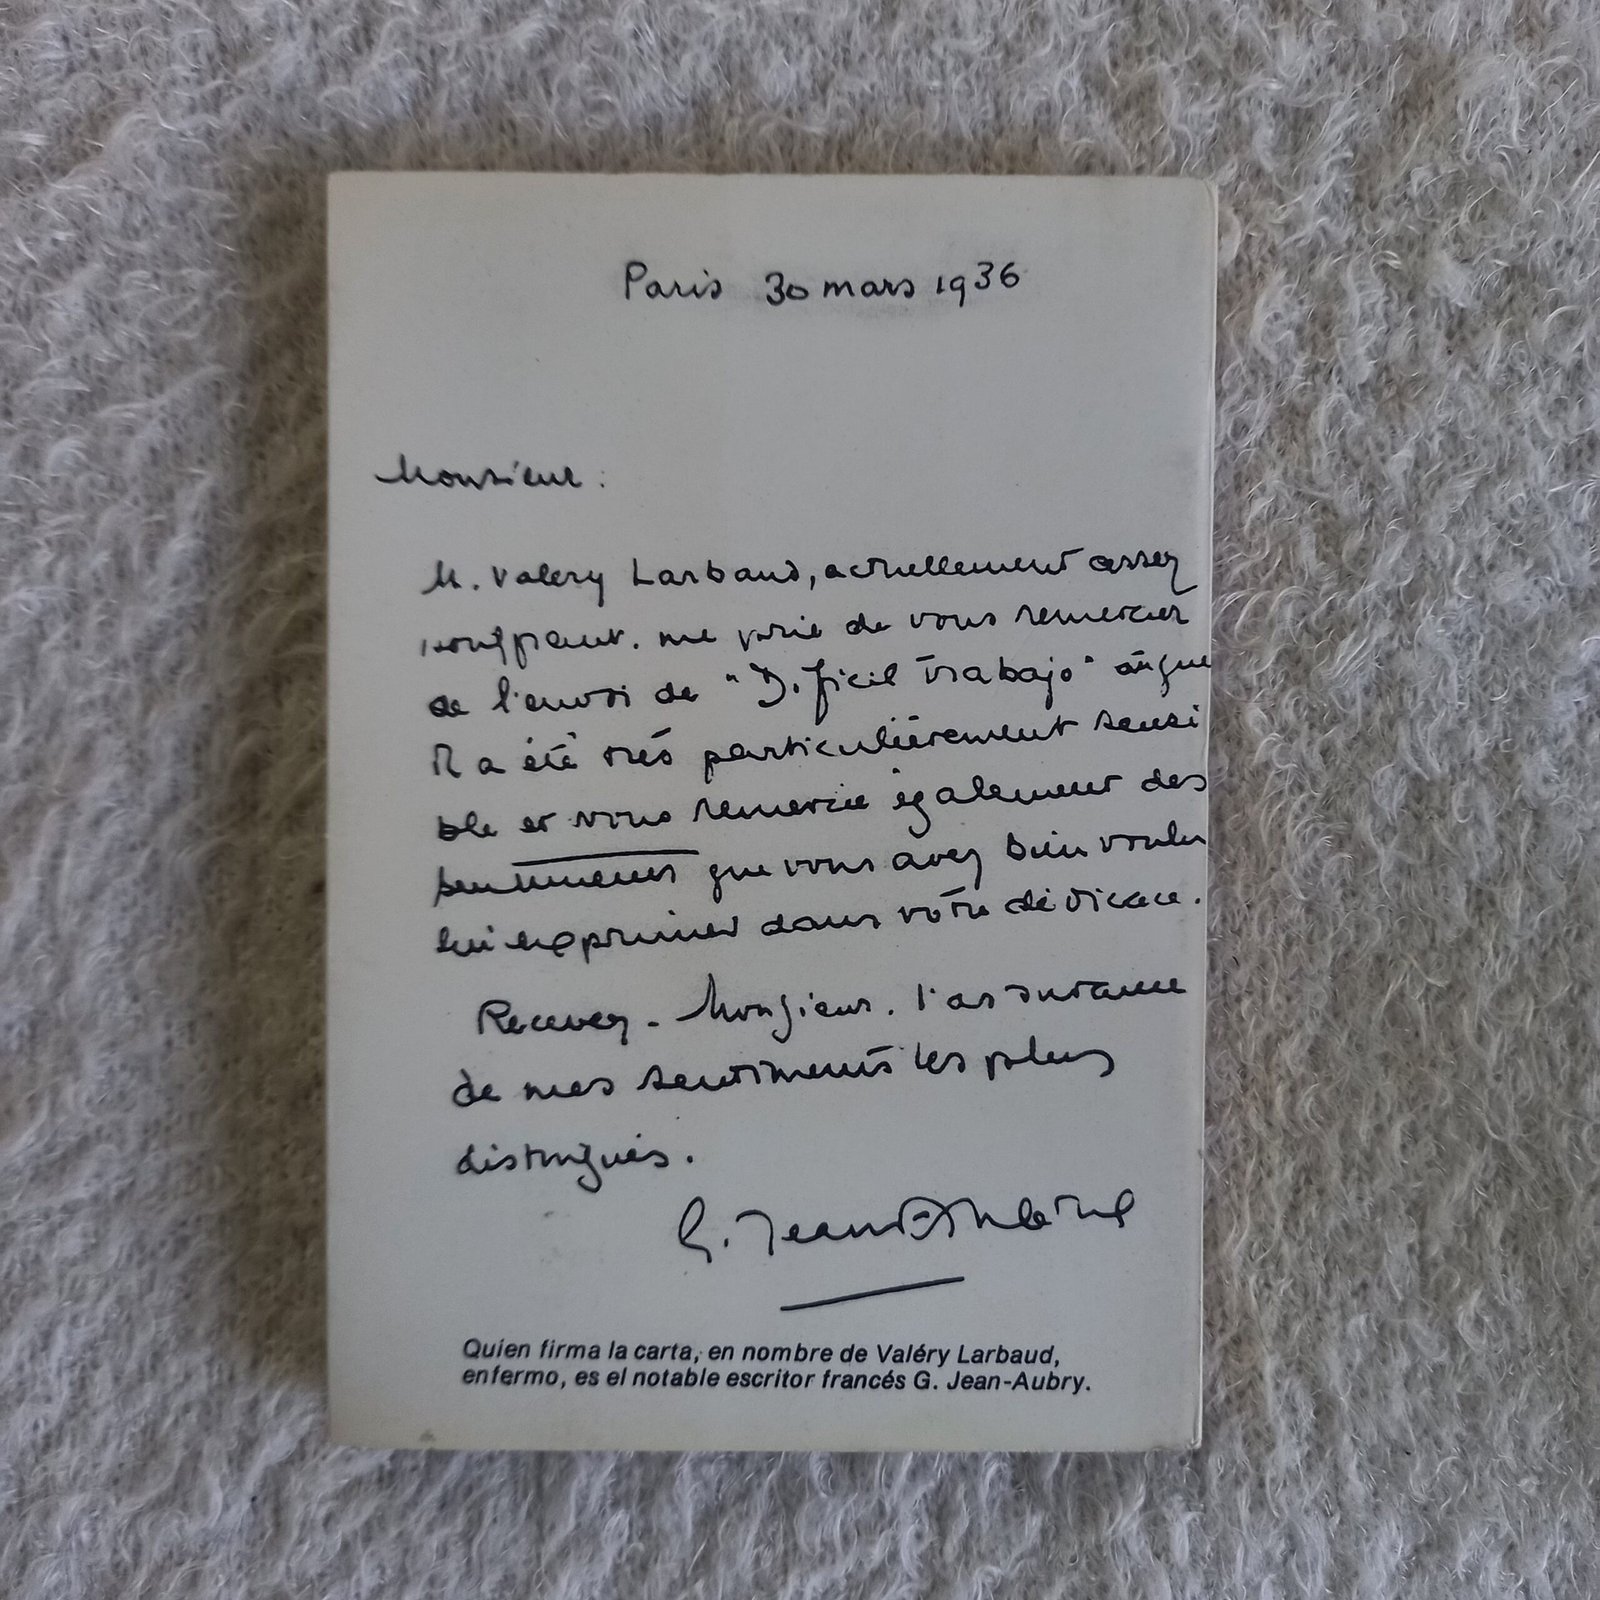 Paris 30 mars 1936
Monsieur :
M. Valery Larbaud, actuellement assez
souffrant. me prie de vous remercier
de l'envoi de "Dificil trabajo" auquel
il a été très particulièrement sensi
ble et vous remercie également des
sentiments que vous avez bien voulu
lui exprimer dans votre dédicace.
Recevez - Monsieur. l'assurance
de mes sentiments les plus
distingués.
G. Jean-Aubry
Quien firma la carta, en nombre de Valéry Larbaud,
enfermo, es el notable escritor francés G. Jean-Aubry.